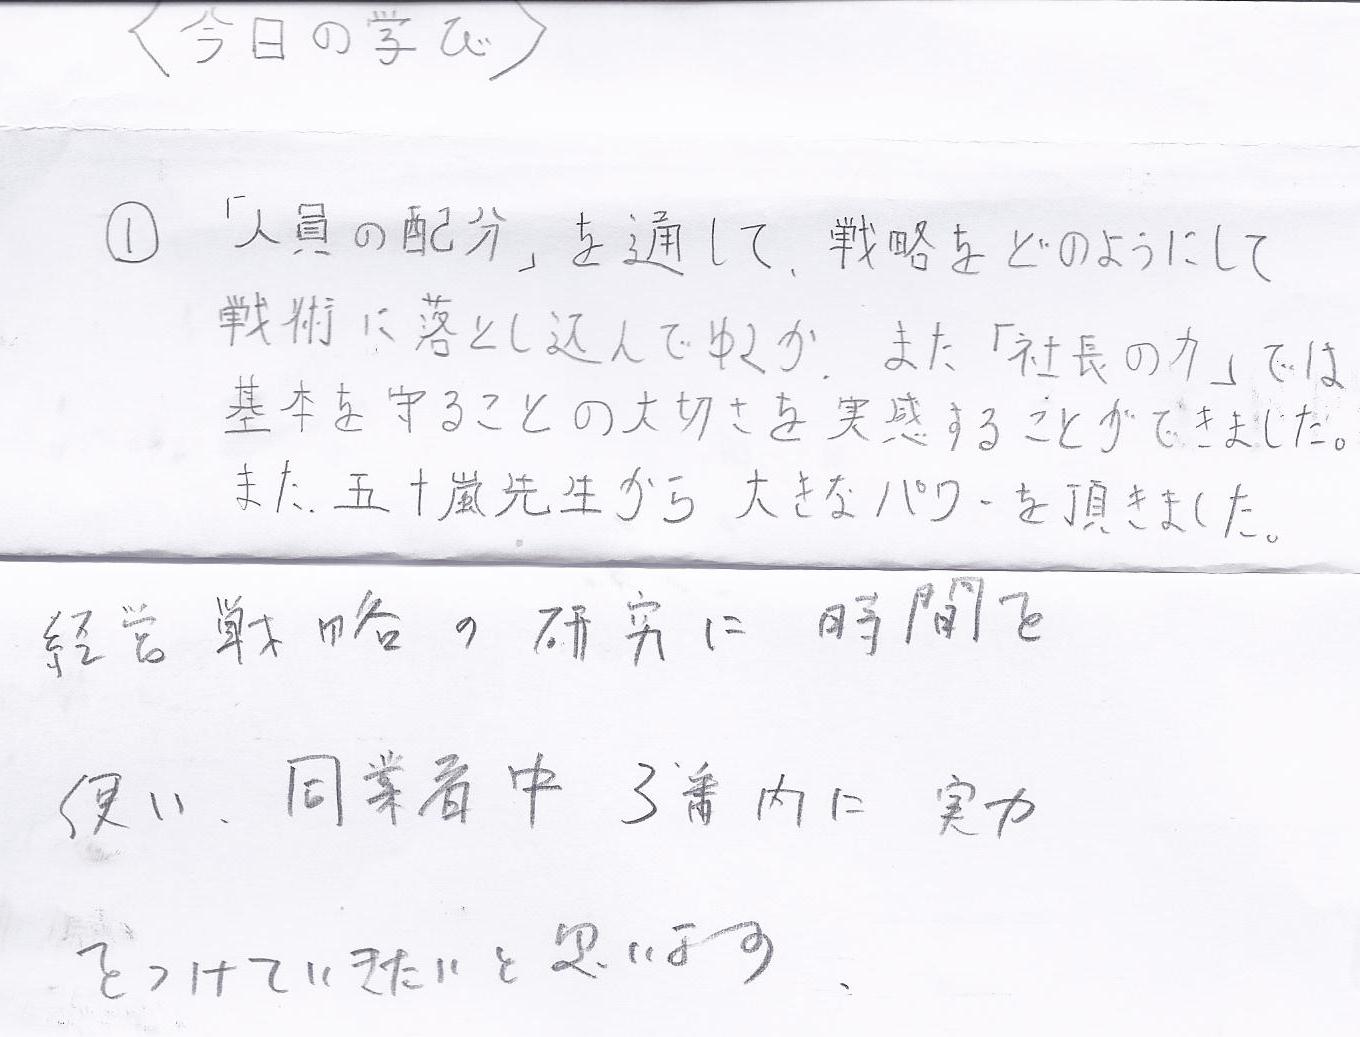 〈今日の学び〉
① 「人員の配分」を通して、戦略をどのようにして
戦術に落とし込んでゆくか、また「社長の力」では
基本を守ることの大切さを実感することができました。
また、五十嵐先生から大きなパワーを頂きました。
経営戦略の研究に時間を
使い、同業者中3番内に実力
をつけていきたいと思います、